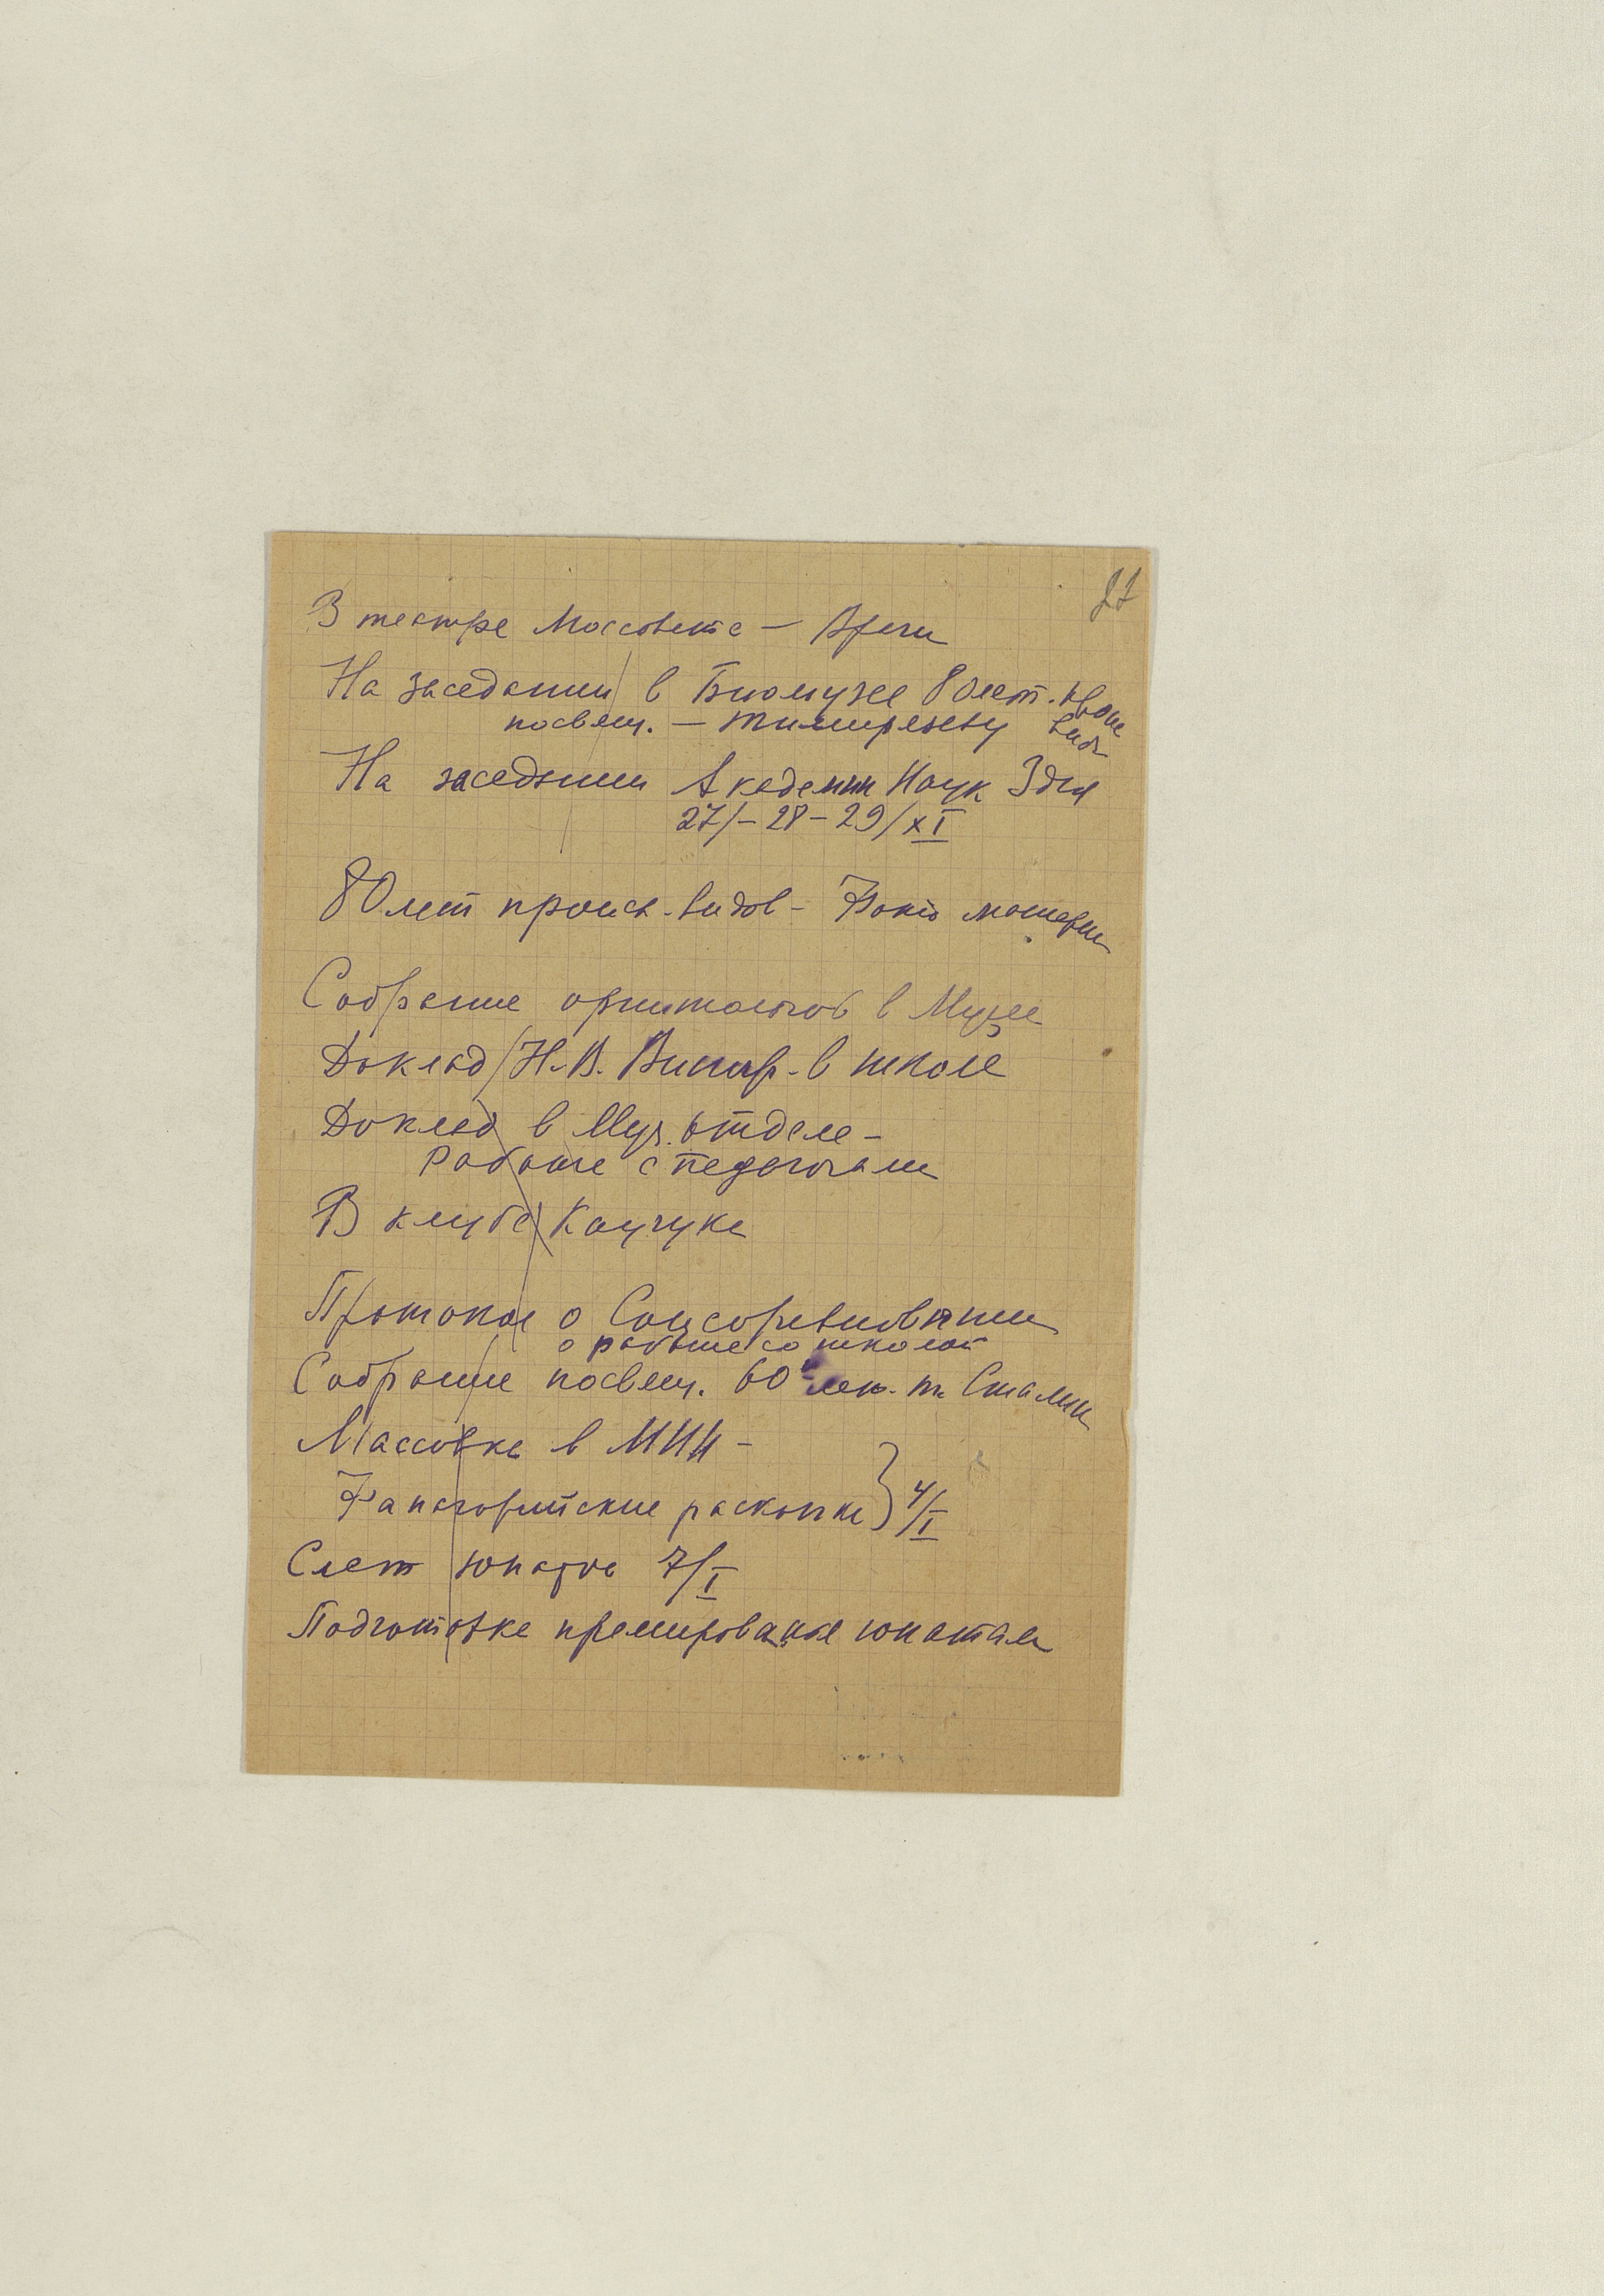 27
В театре Моссовета — Врачи
На заседании в Биомузее 80 лет. проис.
посвящ. — Тимирязеву видов
На заседании Академии Наук 3 дня
27/–28–29/XI
80 лет происх. видов – Фото материи
Собрание орнитологов в Музее
Доклад Н.В. Винар. в школе
Доклад в Муз. отделе –
Работе с педагогами
В клубе Каучука
Протокол о Соцсоревновании
о работе со школой
Собрание посвящ. 60 лет. т. Сталин
Массовка в МИИ –
Фанагорийские раскопки } 4/I
Слет юнатов 7/I
Подготовка премирования юнатам